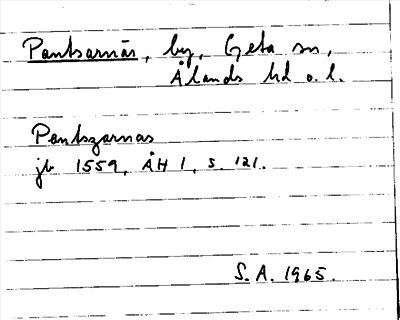 Pantsarnäs, by, Geta sn,
Ålands hd o. l.
Pantszarnas
jb 1559, ÅH 1, s. 121.
S. A. 1965.